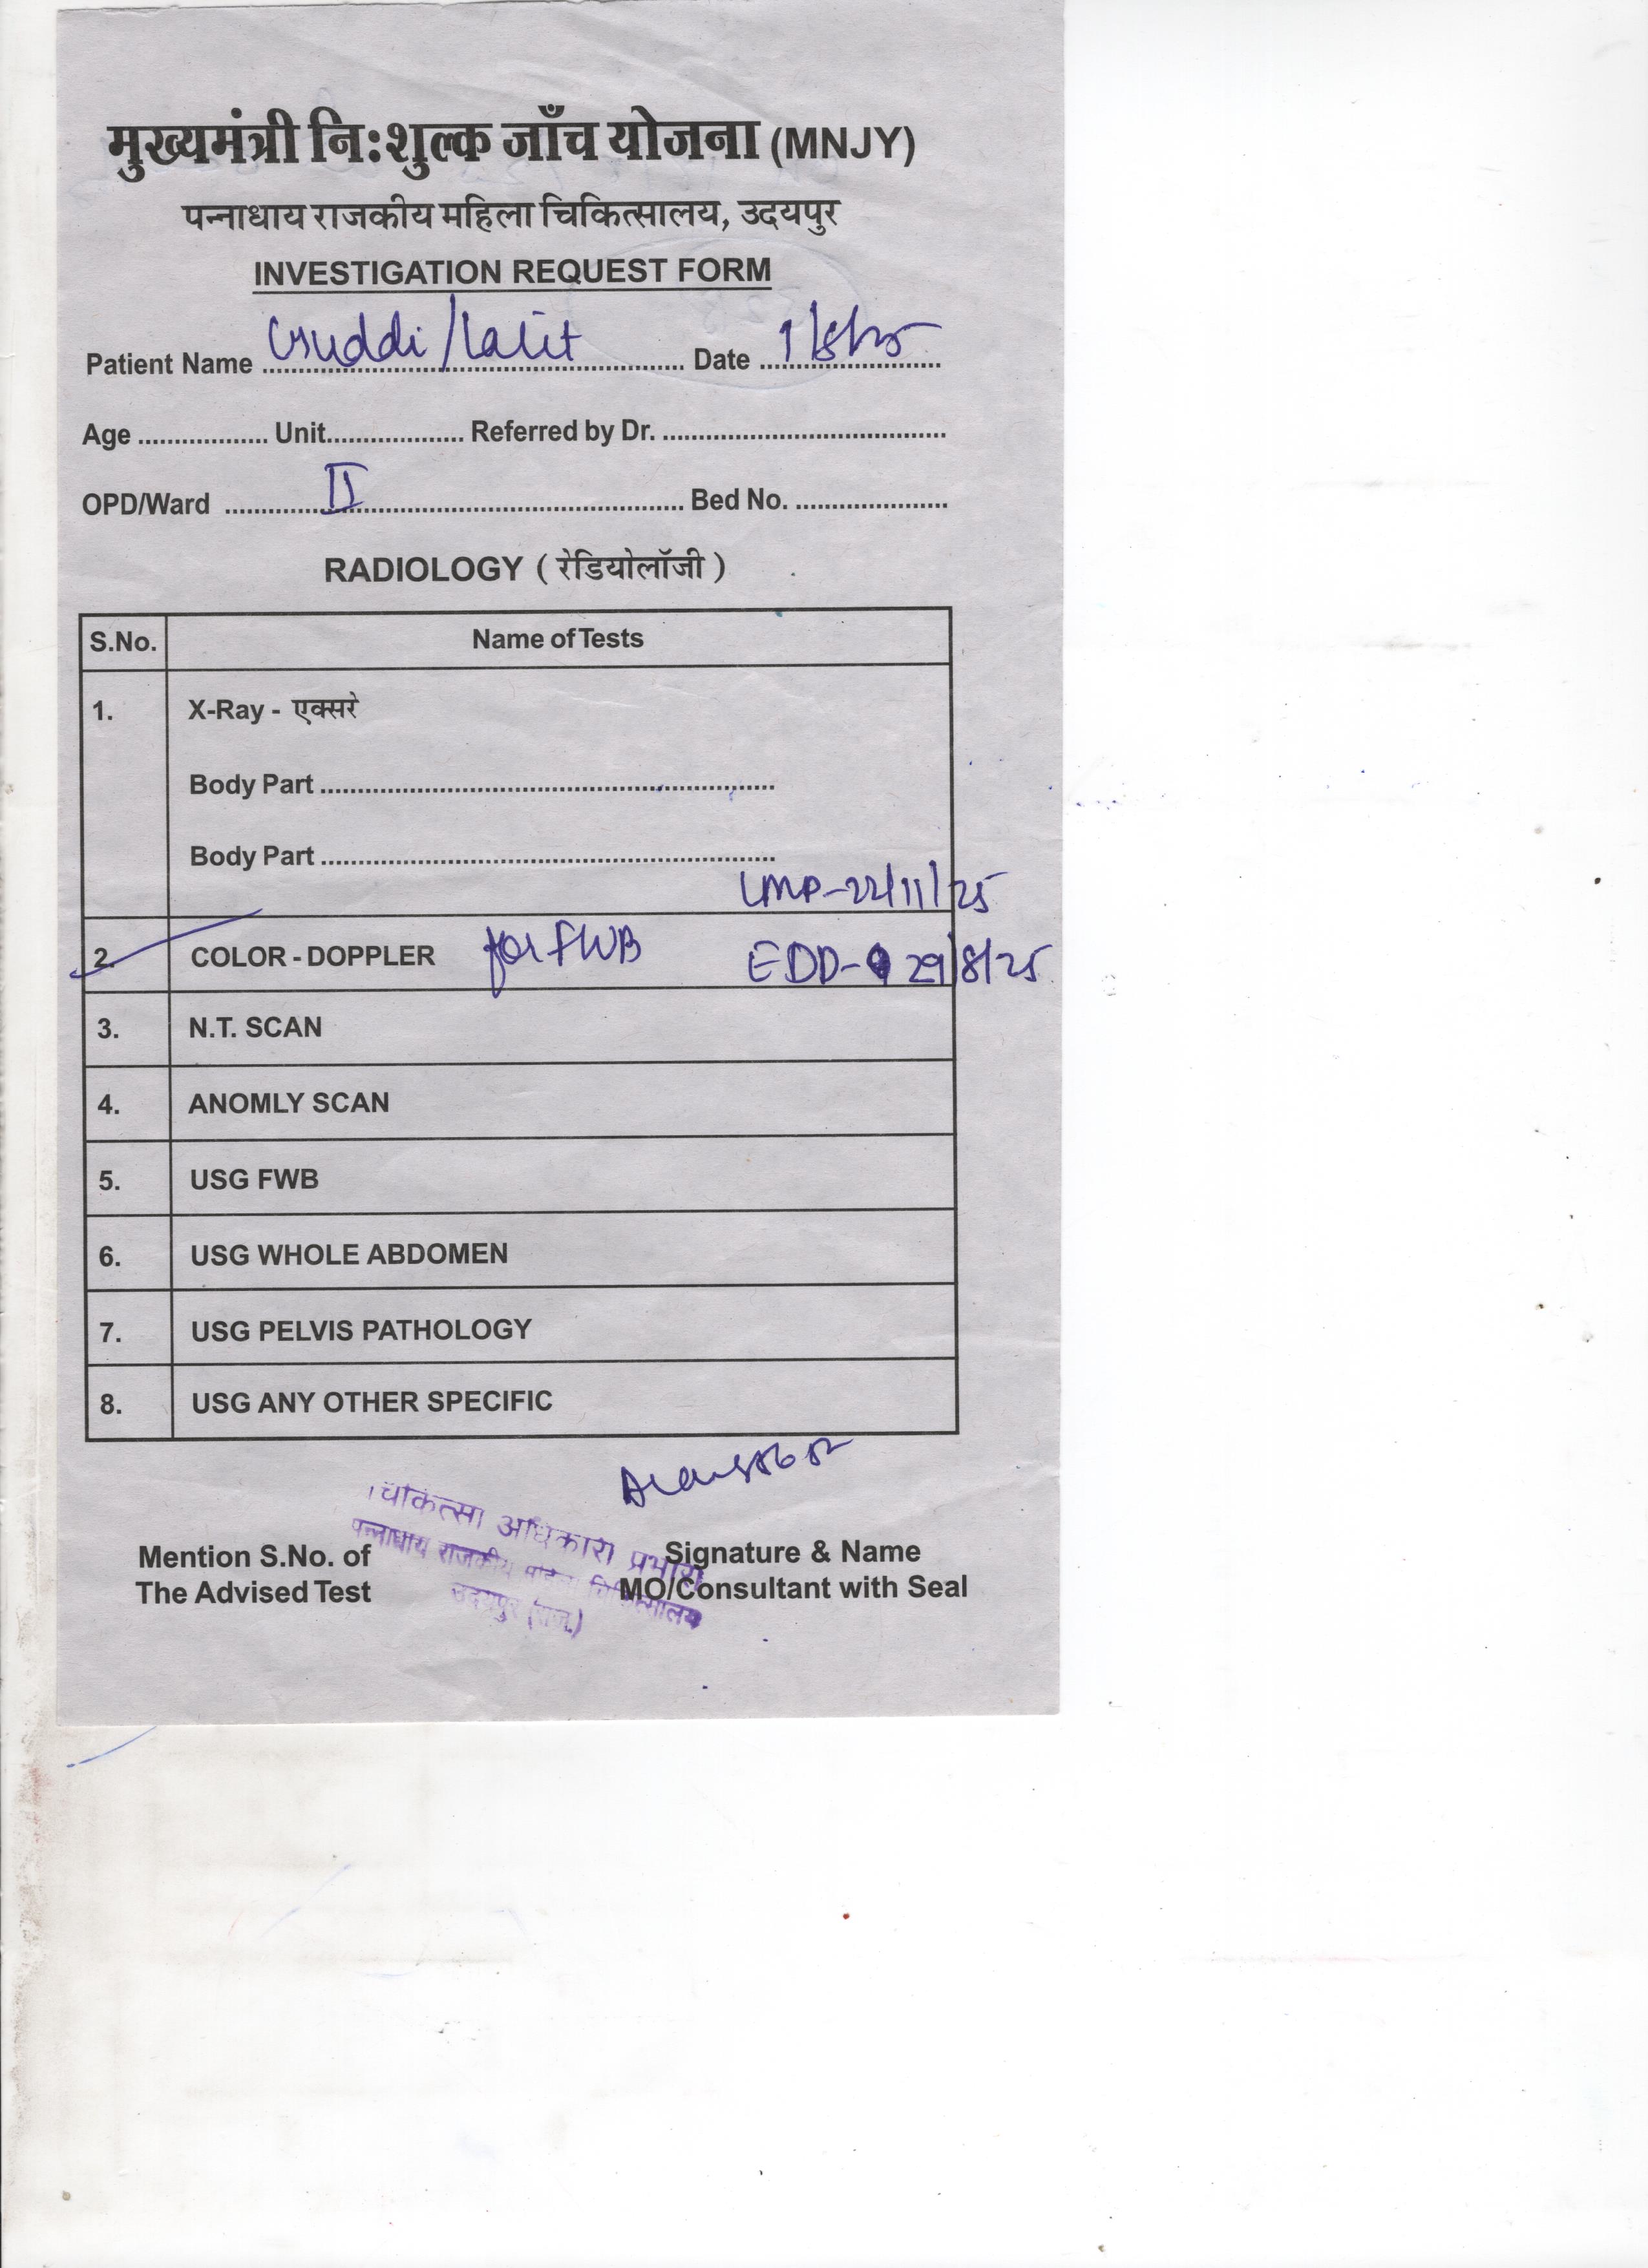 मुख्यमंत्री नि:शुल्क जाँच योजना (MNJY)
पन्नाधाय राजकीय महिला चिकित्सालय, उदयपुर
INVESTIGATION REQUEST FORM
Patient Name Guddi/Lalit Date 1/8/25
Age Unit Referred by Dr.
OPD/Ward II Bed No.
RADIOLOGY ( रेडियोलॉजी )
S.No. Name of Tests
1. X-Ray - एक्सरे
Body Part
Body Part
LMP-22/11/25
2. COLOR - DOPPLER for FWB EDD- 29/8/25
3. N.T. SCAN
4. ANOMLY SCAN
5. USG FWB
6. USG WHOLE ABDOMEN
7. USG PELVIS PATHOLOGY
8. USG ANY OTHER SPECIFIC
चिकित्सा अधिकारी प्रभारी
पन्नाधाय राजकीय महिला चिकित्सालय
उदयपुर (राज.)
Mention S.No. of
The Advised Test
Signature & Name
MO/Consultant with Seal